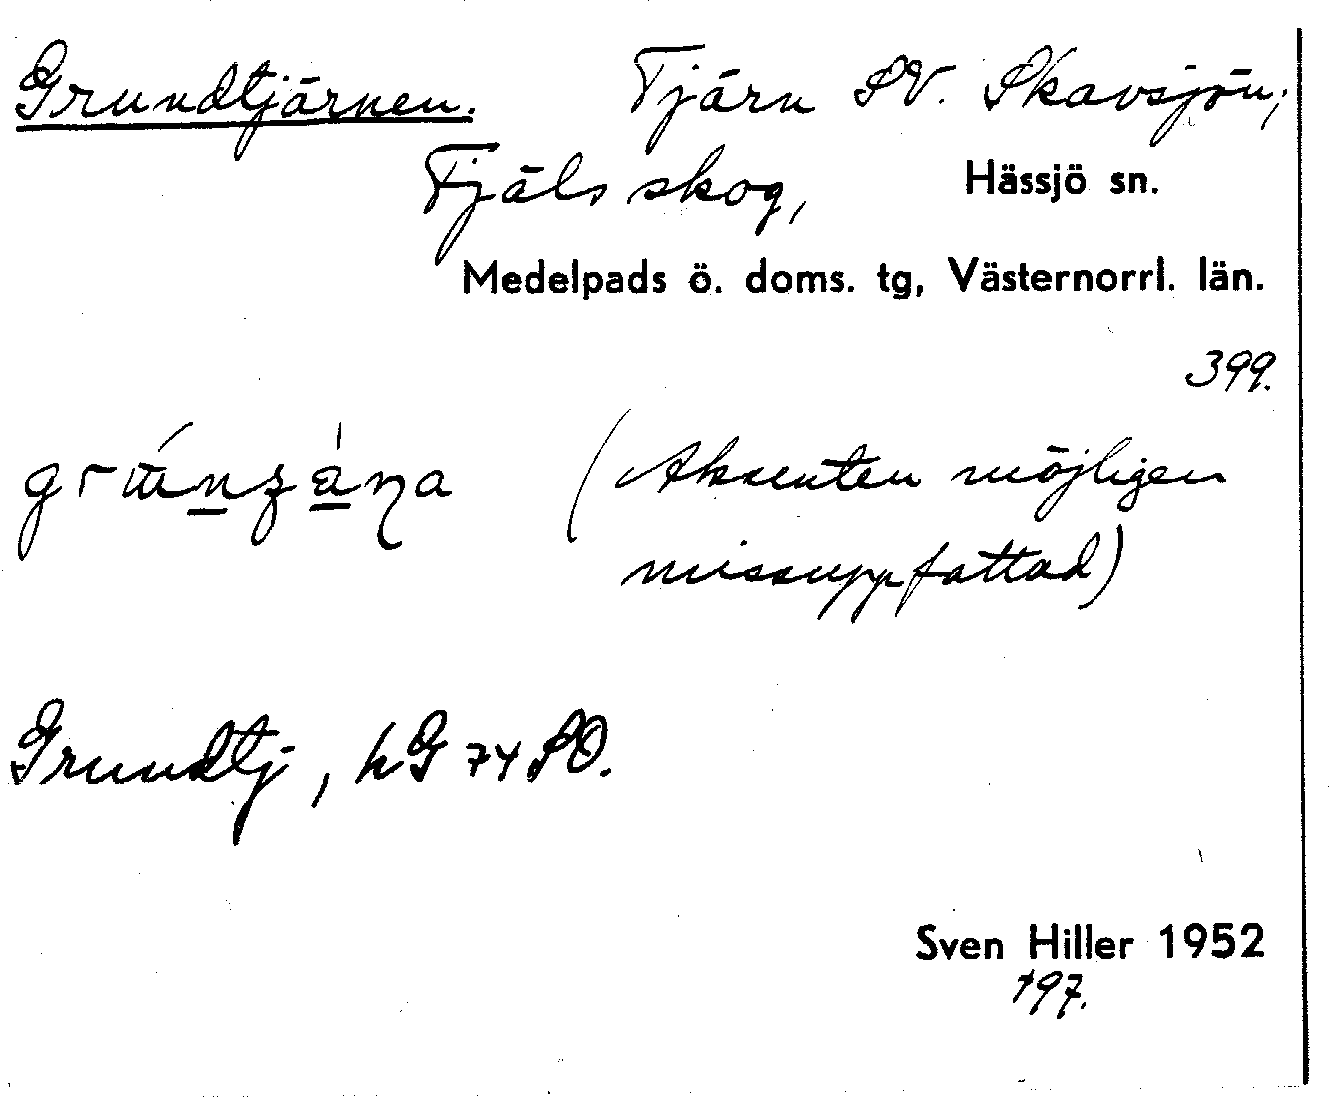 Grundtjärnen. Tjärn SV. Skavsjön;
Tjäls skog, Hässjö sn.
Medelpads ö. doms. tg, Västernorrl. län.
399.
(Aksenten möjligen
missuppfattad)
Grundtj, hG 74 SO.
Sven Hiller 1952
197.